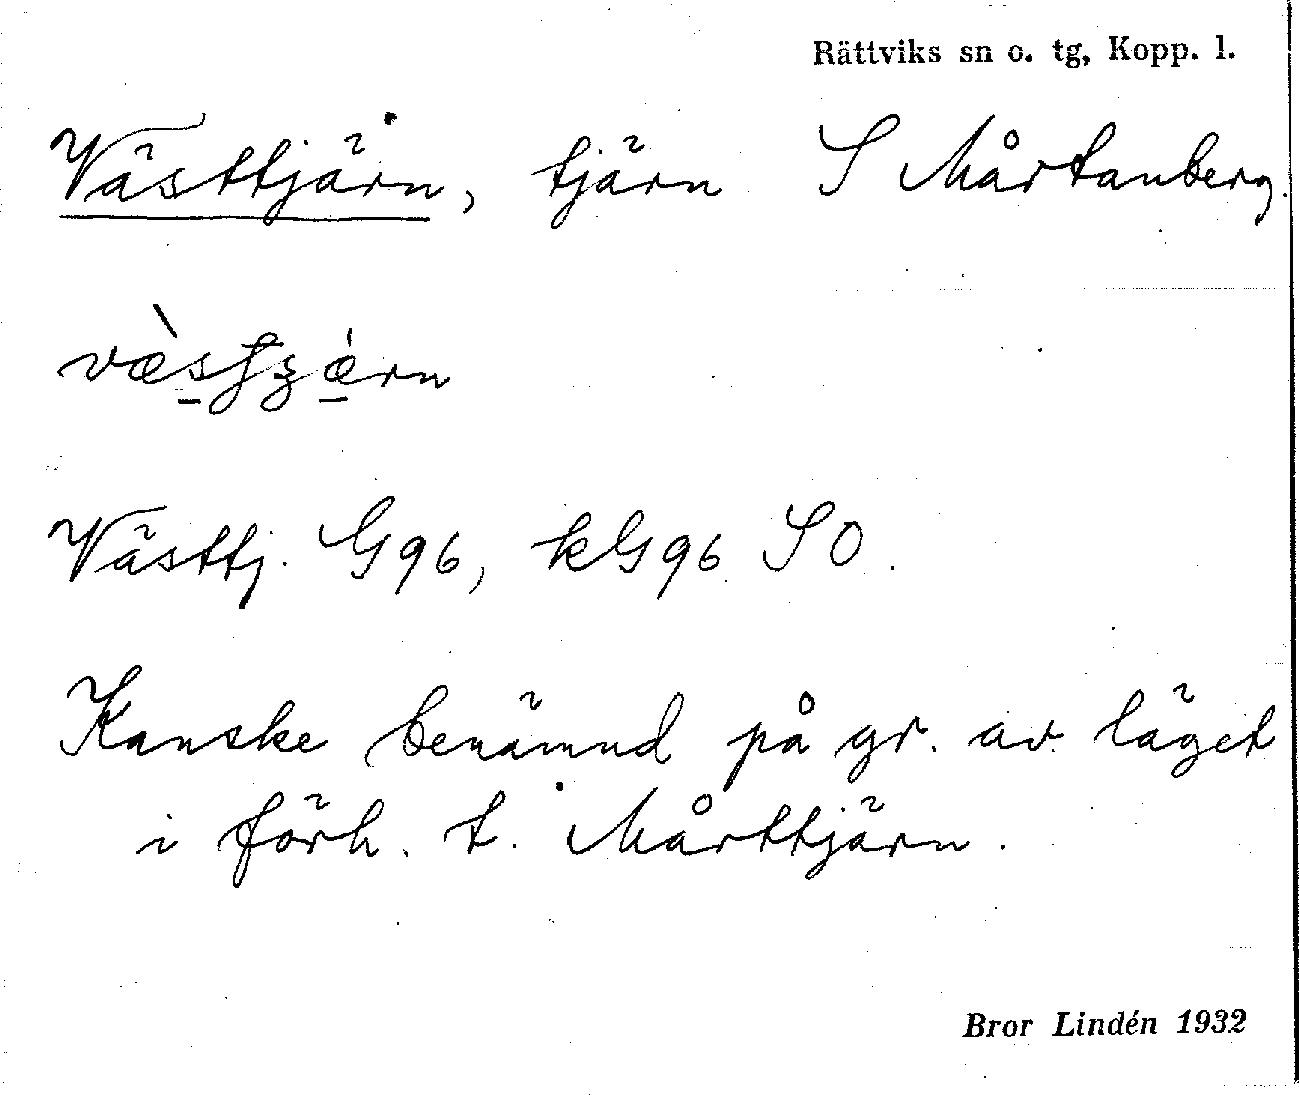 Rättviks sn o. tg, Kopp. l.
Västtjärn, tjärn S Mårtanberg.
Västtj. G96, kG96 SO.
Kanske benämnd på gr. av läget
i förh. t. Mårttjärn.
Bror Lindén 1932